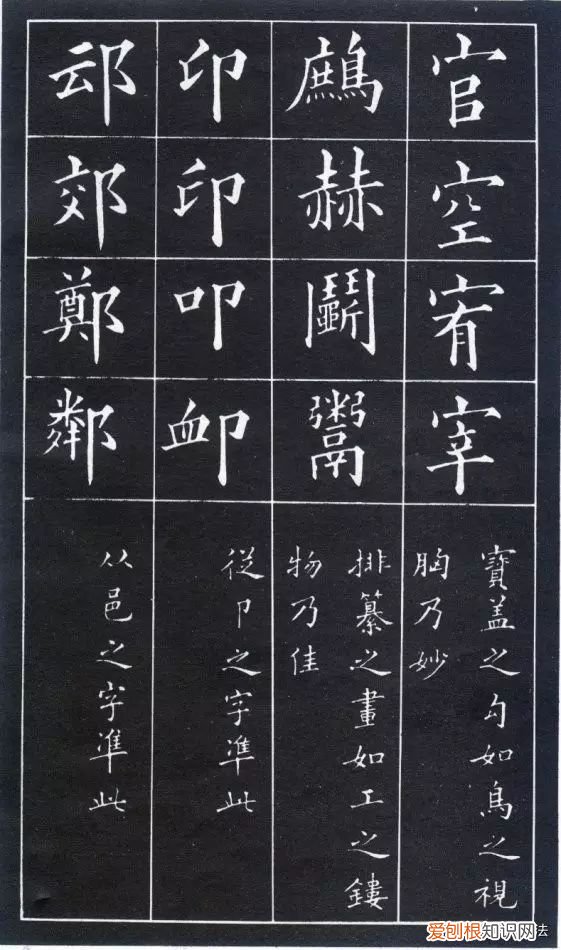 官
空
宥
宰
寶盖之勾如鳥之視
胸乃妙
鷓
赫
鬭
鬻
排纂之畫如工之鏤
物乃佳
印
印
叩
卹
從卩之字準此
䢵
郊
鄭
鄰
从邑之字準此
爱刨根知识网法